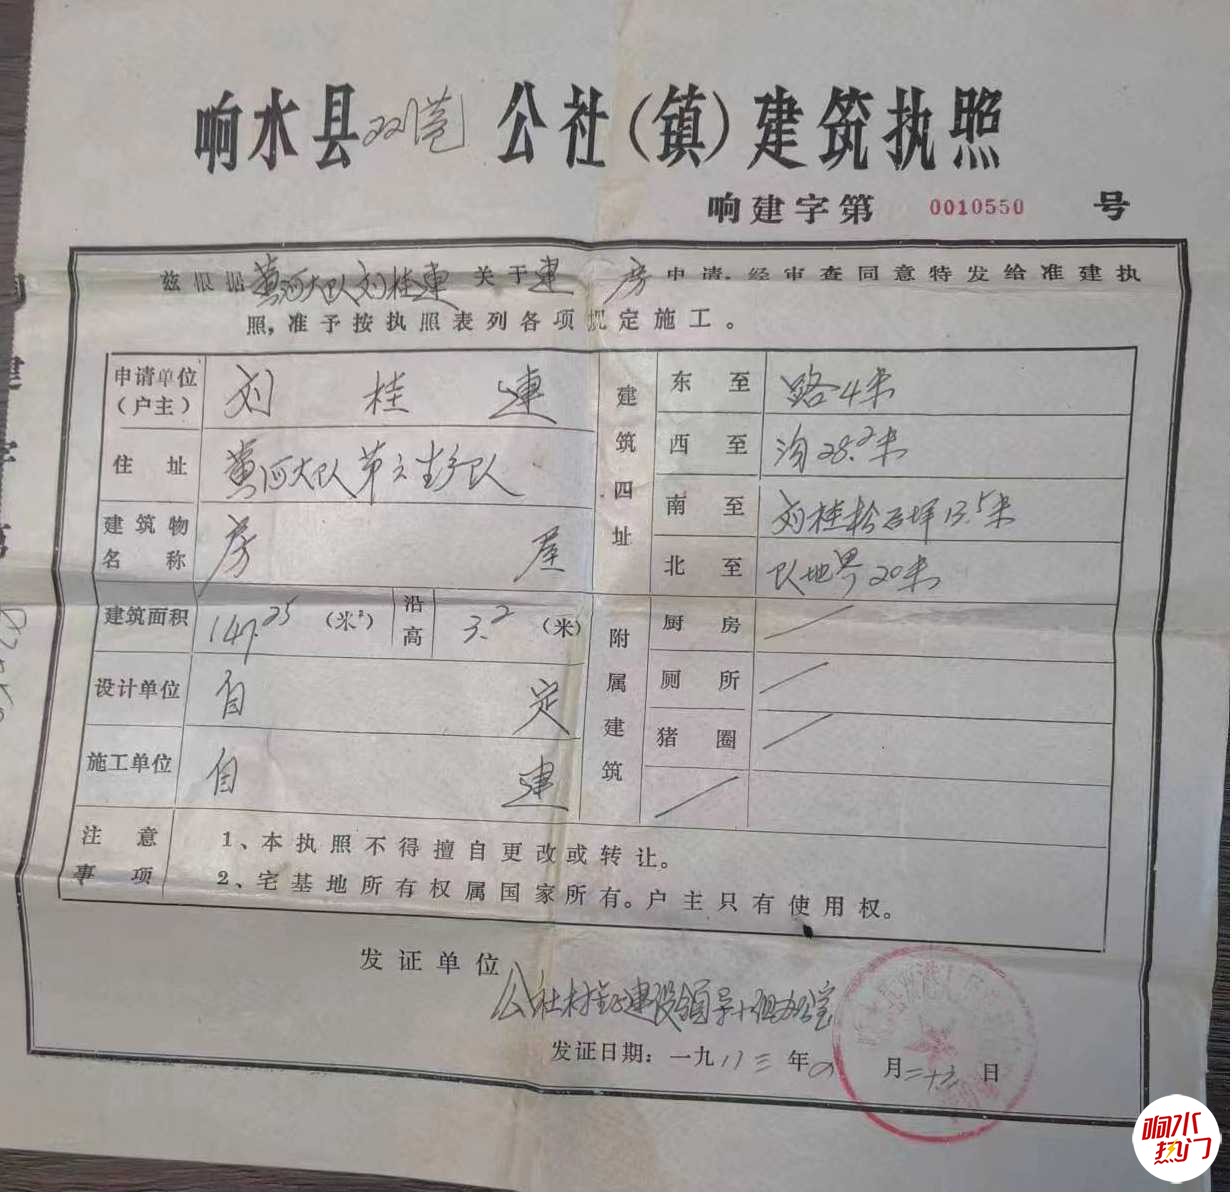 响水县双港公社(镇)建筑执照
响建字第 0010550 号
兹根据黄河大队刘桂連关于建房申请,经审查同意特发给准建执
照,准予按执照表列各项规定施工。
申请单位(户主) 刘桂連
住址 黄河大队第六生产队
建筑物名称 房屋
建筑面积 147.25 (米²) 沿高 3.2 (米)
设计单位 自定
施工单位 自建
建筑四址
东至 路4米
西至 沟28.2米
南至 刘桂松石坪13.5米
北至 队地界20米
附属建筑
厨房 /
厕所 /
猪圈 /
/
注意事项
1、本执照不得擅自更改或转让。
2、宅基地所有权属国家所有。户主只有使用权。
发证单位
公社村镇建设领导小组办公室
发证日期:一九八三年四月二十六日
响水
热门